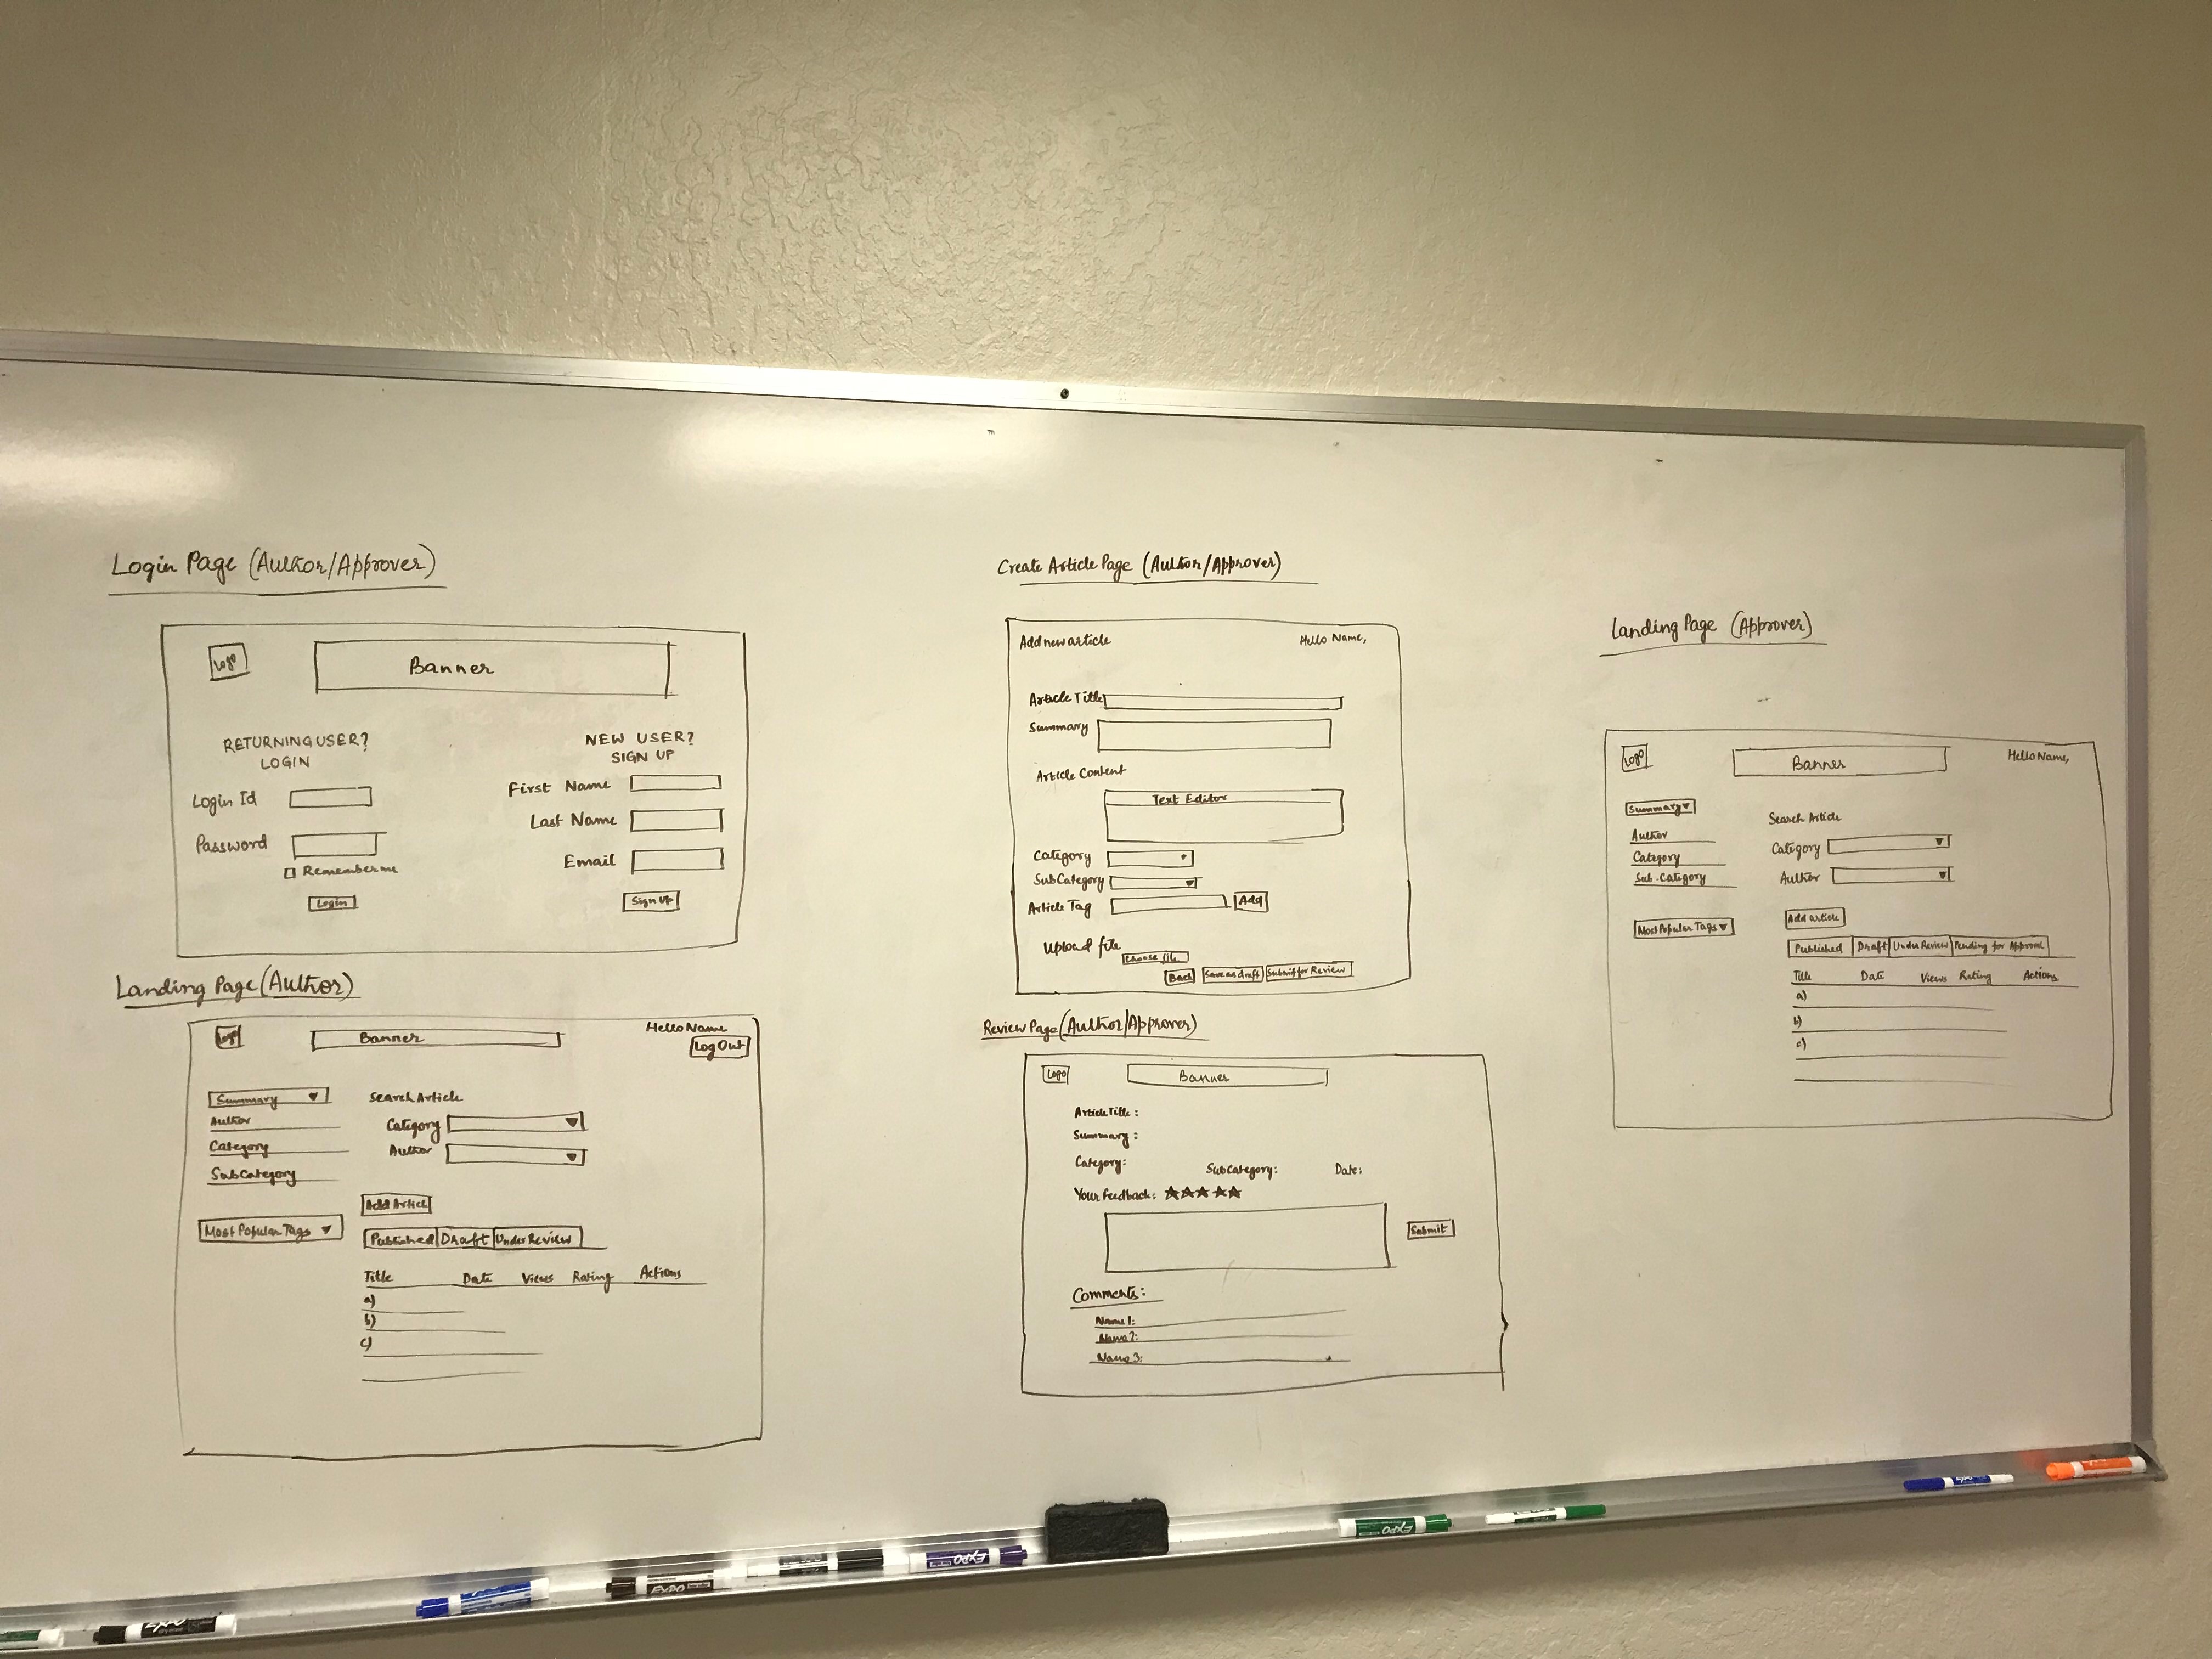 Login Page (Author/Approver)
Logo
Banner
RETURNING USER?
LOGIN
Login Id
Password
Remember me
Login
NEW USER?
SIGN UP
First Name
Last Name
Email
Sign Up
Landing Page (Author)
Logo
Banner
Hello Name
Log Out
Summary
Author
Category
SubCategory
Most Popular Tags
Search Article
Category
Author
Add Article
Published Draft Under Review
Title Date Views Rating Actions
a)
b)
c)
Create Article Page (Author/Approver)
Add new article Hello Name,
Article Title
Summary
Article Content
Text Editor
Category
SubCategory
Article Tag Add
Upload file
Choose file
Back Save as draft Submit for Review
Review Page (Author/Approver)
Logo
Banner
Article Title :
Summary :
Category: SubCategory: Date:
Your Feedback:
Submit
Comments:
Name 1:
Name 2:
Name 3:
Landing Page (Approver)
Logo
Banner
Hello Name,
Summary
Author
Category
Sub-Category
Most Popular Tags
Search Article
Category
Author
Add article
Published Draft Under Review Pending for Approval
Title Date Views Rating Actions
a)
b)
c)
EXPO
EXPO
EXPO
EXPO